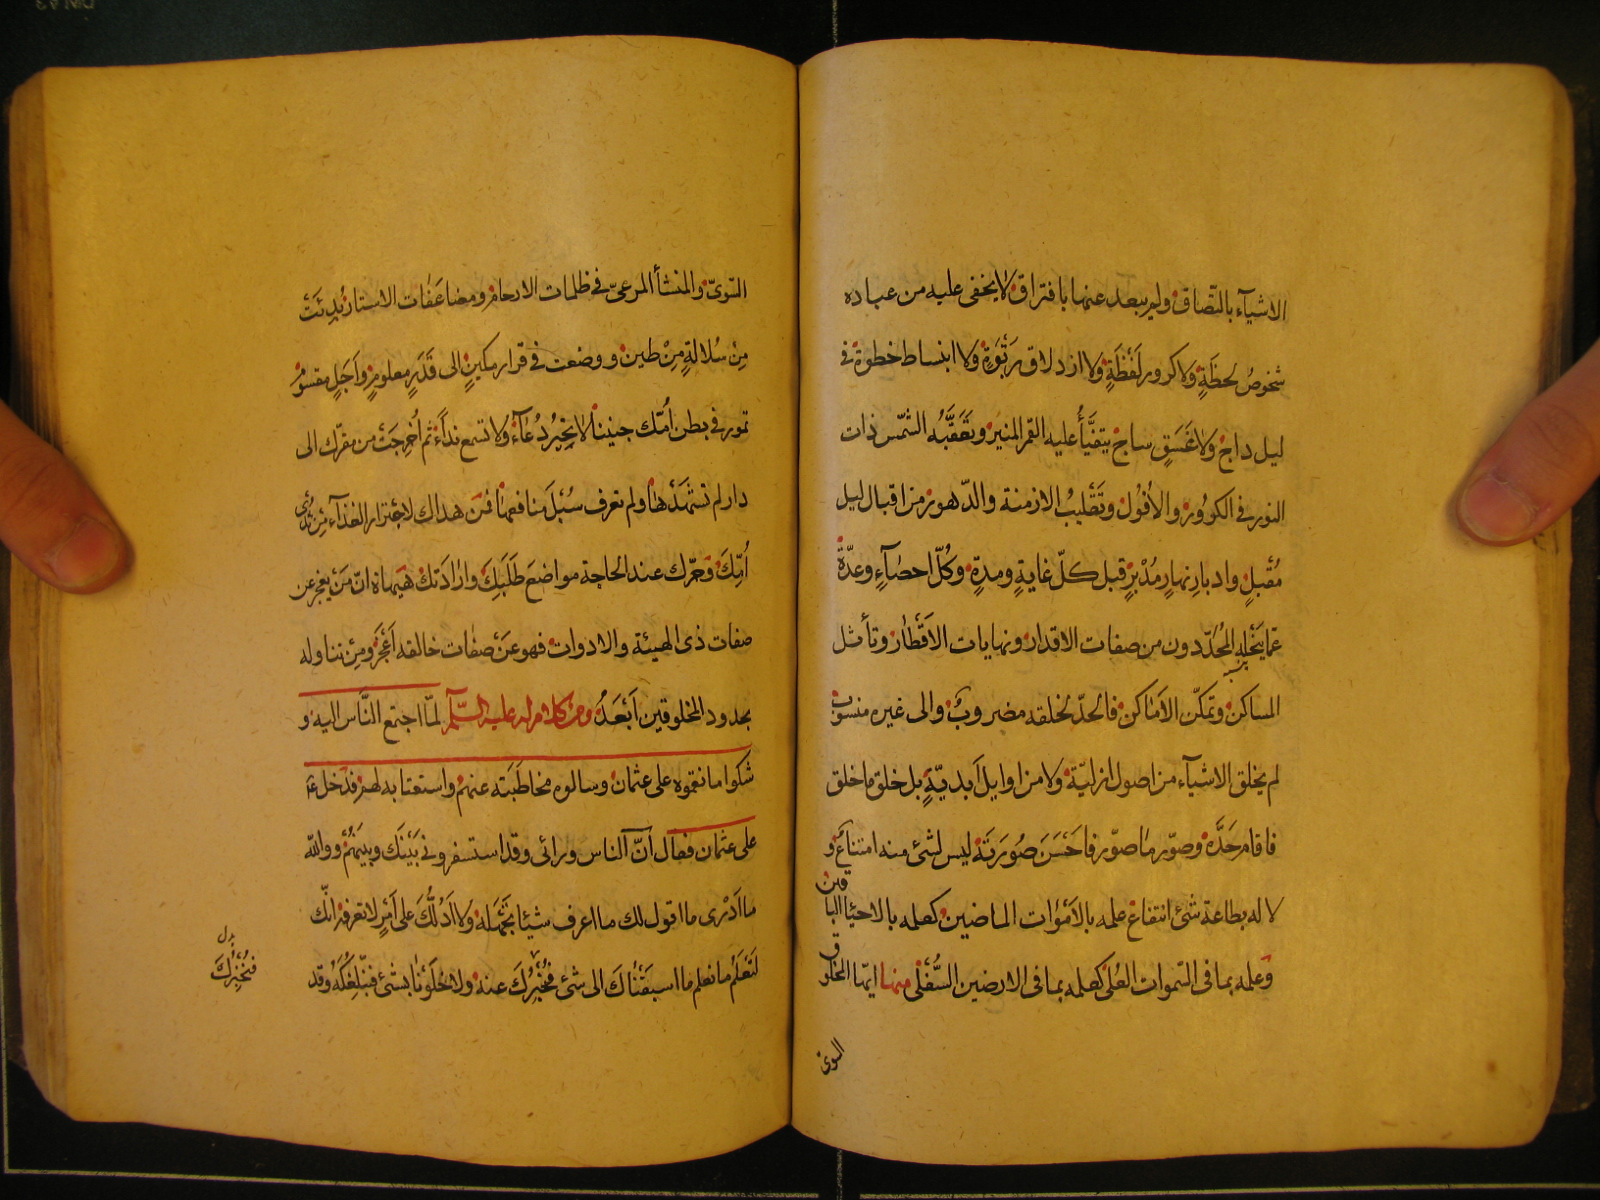 الاشيآء بالتّصاق ولم يبعد عنها بافتراق لا يخفى عليه من عباده
شخوصُ لحظَةٍ ولا كرور لَفْظَةٍ ولا ازدلاق رَبْوَةٍ ولا انبساط خطوة فى
ليل داج ولا غَسَقٍ ساج يتفيَّأُ عليه القمر المنير وتعَقَّبُه الشّمس ذات
النور فى الكرُور والأفُول وتَقْليبُ الازمنة والدّهور من اقبال ليل
مُقْبلٍ وادبارِ نهارٍ مُدْبرٍ قبل كلّ غايةٍ ومدةٍ وكُلّ احصَآءٍ وعدّةٍ
عمّا ينْحَلُه المُحَدّدون من صفات الاقدار ونهايات الاَقْطار وتأثل
المساكن وتمكّن الاَماكن فالحدّ لخلقه مضروبٌ والى غيره منسوب
لم يخلق الاشيآء من اصول ازليّة ولا من اوايل اَبديّةٍ بل خلق ما خلق
فاقام حَدَّه وصوّر ما صوّر فاَحْسَنَ صُورَتَه ليس لشئ منه امتناعٌ و
لا له بطاعة شئ انتفاع علمه بالاَمْوات الماضين كعلمه بالاحيَا الباقين
وَعلمه بما فى السّموات العُلى كعلمه بما فى الارضين السُّفْلى منها ايّها المخلوق
السوىّ
السّوىّ والمنشأ المرعىّ فى ظلمات الارحام ومضاعَفَات الاستار بُدِئتَ
مِن سُلالةٍ مِنْ طين ووضعت فى قرار مكينٍ الى قَدَرٍ معلومٍ واَجَلٍ مقسومٍ
تمور فى بطن اُمّك جنينا لا تحِيُر دُعَآءً ولا تسمع ندآءً ثم اُخرِجتَ من مقرّك الى
دار لم تشهَدْها ولم تعرف سُبُلَ منافعها فمَن هداك لاجترار الغذآء مِن ثَدْىِ
اُمّكَ وَعَرّفك عند الحاجة مواضعَ طَلَبِكَ وارَادَتكَ هَيهاة انّ مَنْ يعْجز عن
صفات ذى الهيئة والادوات فهو عَنْ صفات خالقه اَعْجَزُ ومِنْ تناوله
بحدود المخلوقين اَبْعَدُ ومن كلام له عليه السّلم لمّا اجتمع النَّاس اليه و
شكوا ما نقموه على عثمان وسالوه مخاطَبَته عنهمُ واستعتابه لهم فدخل ع
على عثمان فقال انّ الناس ورائى وقد استسفرونى بَيْنَك وبَيْنهُمْ ووالله
ما اَدْرى ما اقول لك ما اعرف شيئا تجْهَله ولا اَدُلُّكَ على اَمرٍ لا تعرفه انّك
لتَعْلمُ ما نعلم ما سبَقْناكَ الى شئ فنُخْبِرُكَ عنه ولا خَلَوْنا بشئ فنبلّغُكَهُ وقد
فنُخْبِرُكَ